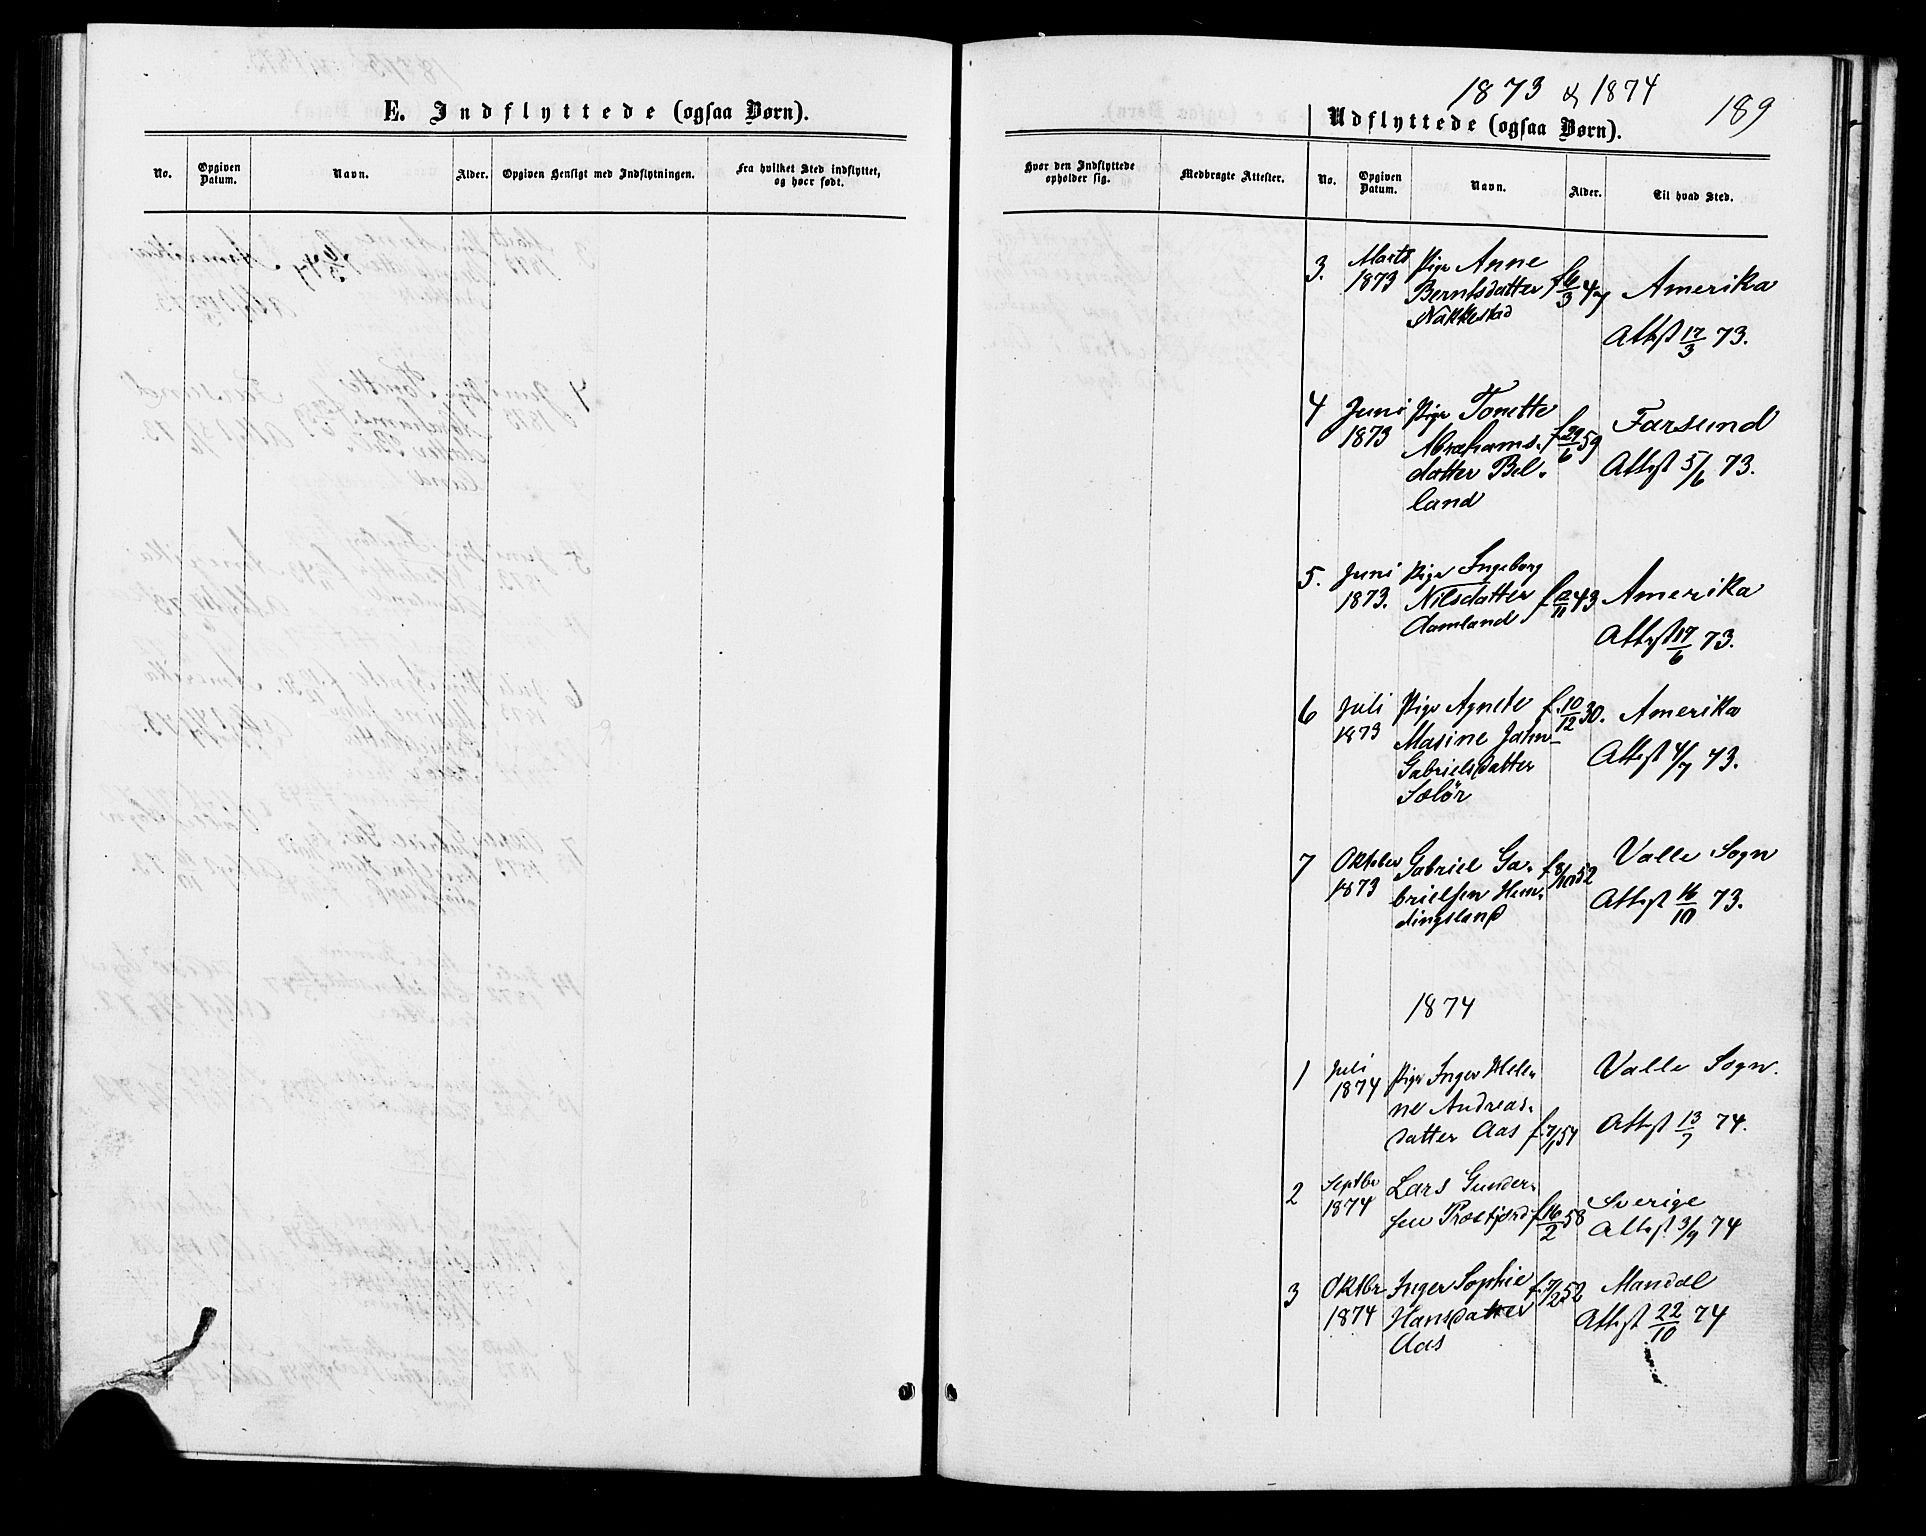 E. Indflyttede (ogsaa Børn).
No.
Opgiven Datum.
Navn.
Alder.
Opgiven Hensigt med Indflytningen.
Fra hvilket Sted indflyttet, og hvor født.
1873 & 1874
189
Udflyttede (ogsaa Børn).
Hvor den Indflyttede opholder sig.
Medbragte Attester.
No.
Opgiven Datum.
Navn.
Alder.
Til hvad Sted.
3. Marts Pige Anne
1873 Berntsdatter f 6/3 47 Amerika
Nakkestad
Attest 17/3 73.
4 Juni Pige Tonette Farsund
1873 Abrahams- f 29/6 59
datter Bel- Attest 5/6 73.
land
5. Juni Pige Ingeborg Amerika
1873. Nilsdatter f 2/11 43
Aamland Attest 17/6 73.
6 Juli Pige Agnete f. 10/12 30. Amerika
1873 Masine Jahn- Attest 4/7 73.
Gabrielsdatter
Selör
7 Oktober Gabriel Ga- f 8/10 52 Valle Sogn
1873 brielsen Hem- Attest 16/10 73.
dingsland
1874
1 Juli Pige Inger Hele- Valle Sogn.
1874 ne Andreas-
datter Aas f. 7/1 54 Attest 13/7 74.
2 Septbr Lars Gunder- Sverige
1874 sen Præstfjord f 16/2 58 Attest 3/9 74
3 Oktbr Inger Sophie f. 7/2 52 Mandal
1874 Hansdatter Attest 22/10 74
Aas